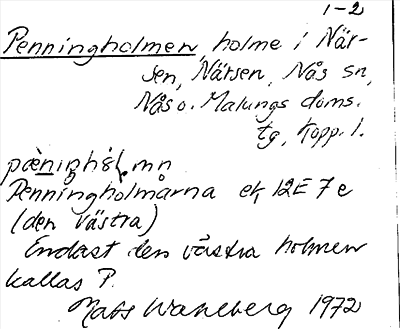 1-2
Penningholmen, holme i När-
sen, Närsen, Nås sn,
Nås o. Malungs doms.
tg, Kopp. l.
Penningholmarna ek 12E 7e
(den västra)
Endast den västra holmen
kallas P.
Mats Wahlberg 1972